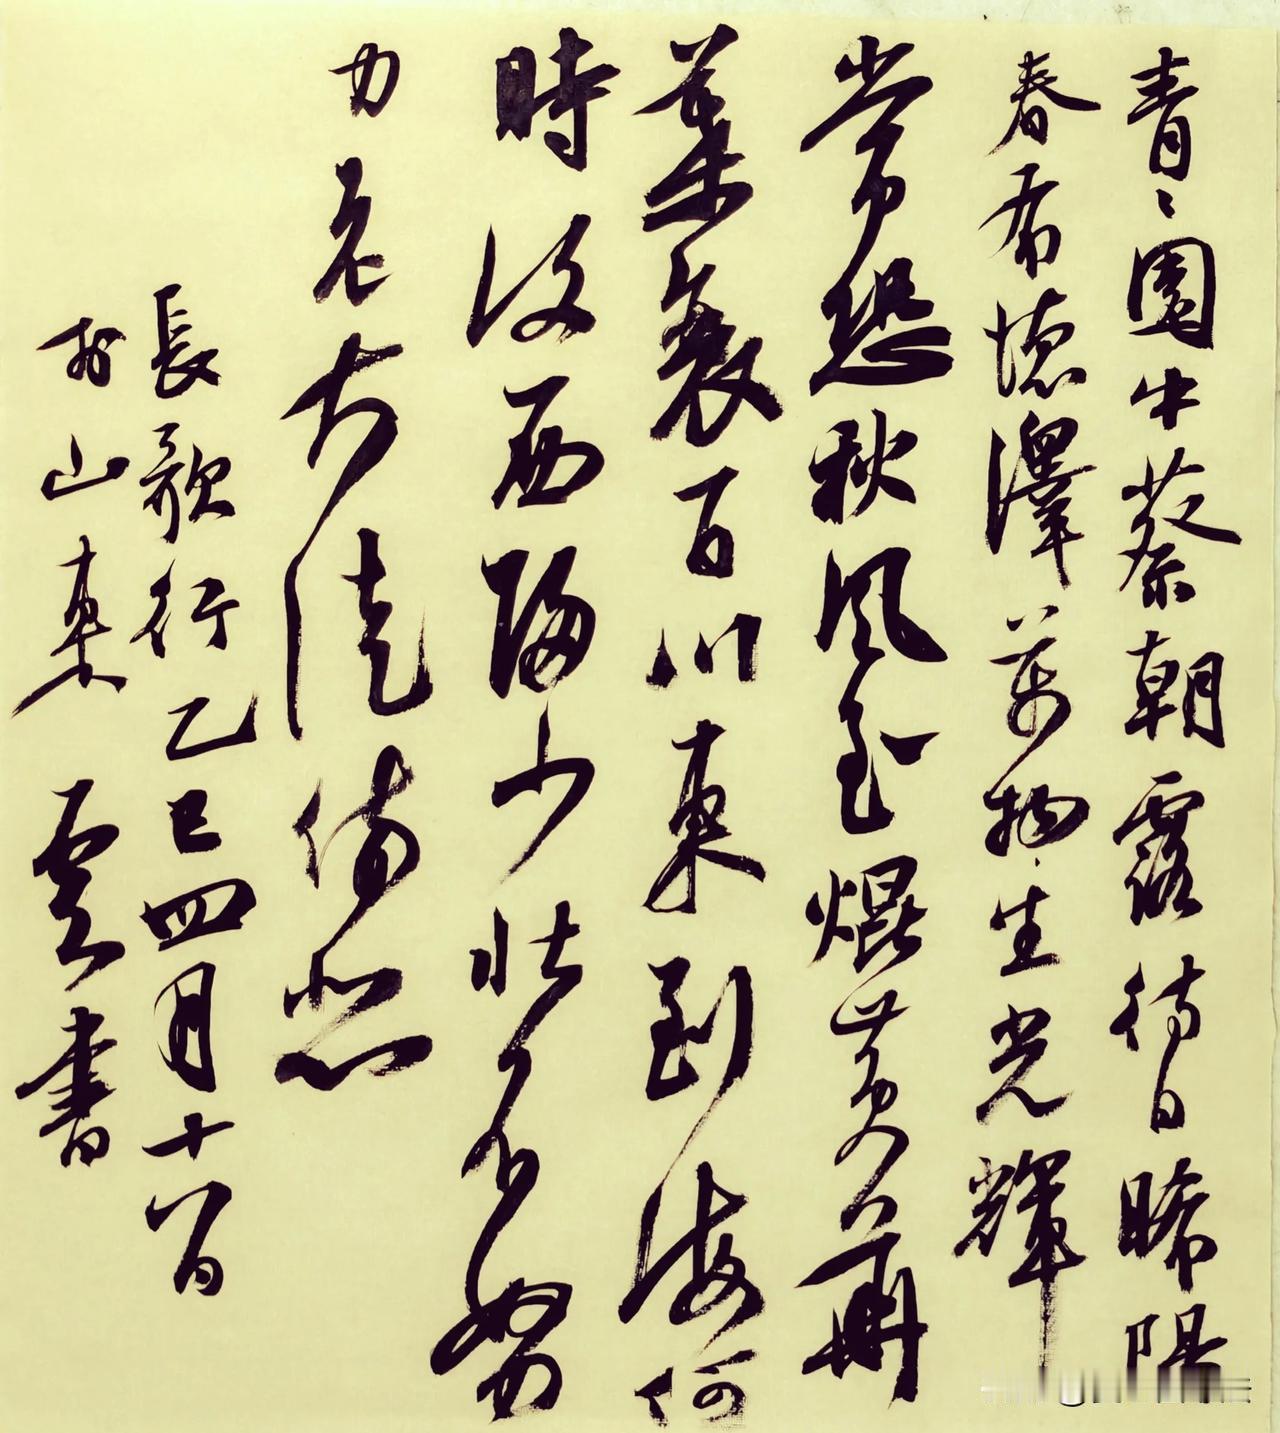 青々園中葵朝露待日晞陽
春布德澤萬物生光輝
常恐秋風至焜黄華
葉衰百川東到海何
時復西歸少壯不努
力老大徒傷悲
長歌行乙巳四月十八日
於山東雲書